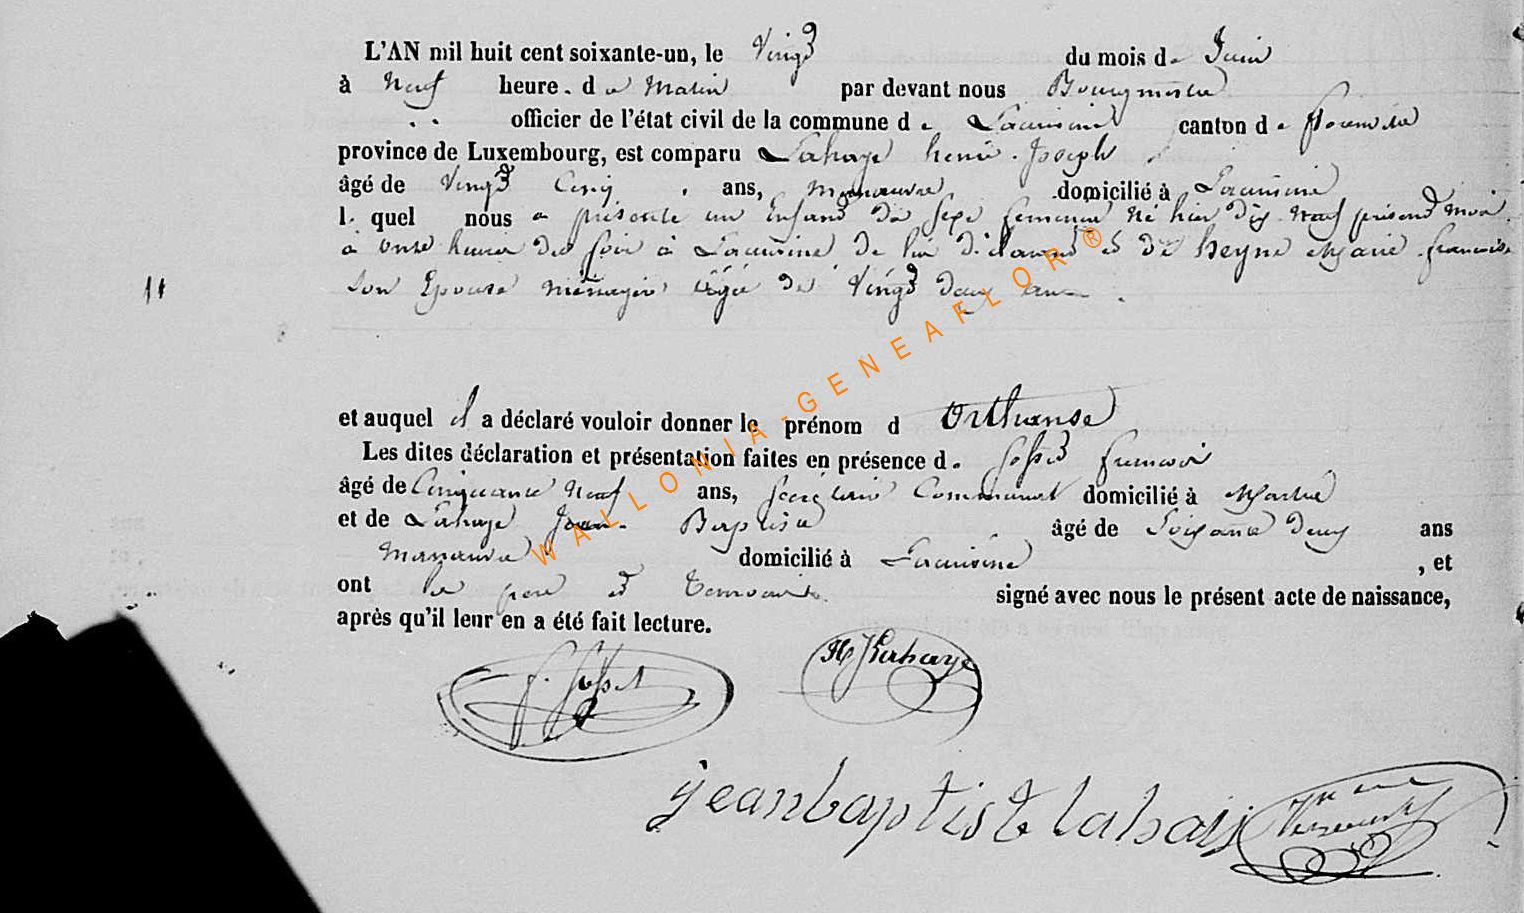 L'AN mil huit cent soixante-un, le Vingt du mois de Juin
à Neuf heure. du Matin par devant nous Bourgmestre
officier de l'état civil de la commune de Lacuisine canton de florenville
province de Luxembourg, est comparu Lahaye henri. Joseph
âgé de Vingt Cinq ans, manœuvre domicilié à Lacuisine
lequel nous a présenté un Enfant du sexe feminin Né hier dix. Neuf présent mois
à onze heures du soir à Lacuisine de lui déclarant et de heyne Marie. francoise
11 Son Epouse ménagère âgée de Vingt deux ans.
et auquel il a déclaré vouloir donner le prénom d Orthanse
Les dites déclaration et présentation faites en présence de Josset francois
âgé de Cinquante Neuf ans, Secrétaire Communal domicilié à
et de Lahaye Jean. Baptiste âgé de Soixante Deux ans
manœuvre domicilié à Lacuisine, et
ont le père et temoins signé avec nous le présent acte de naissance,
après qu'il leur en a été fait lecture.
f. Josset HJ Lahaye
jeanbaptiste lahaij
WALLONIA-GENEAFLOR®